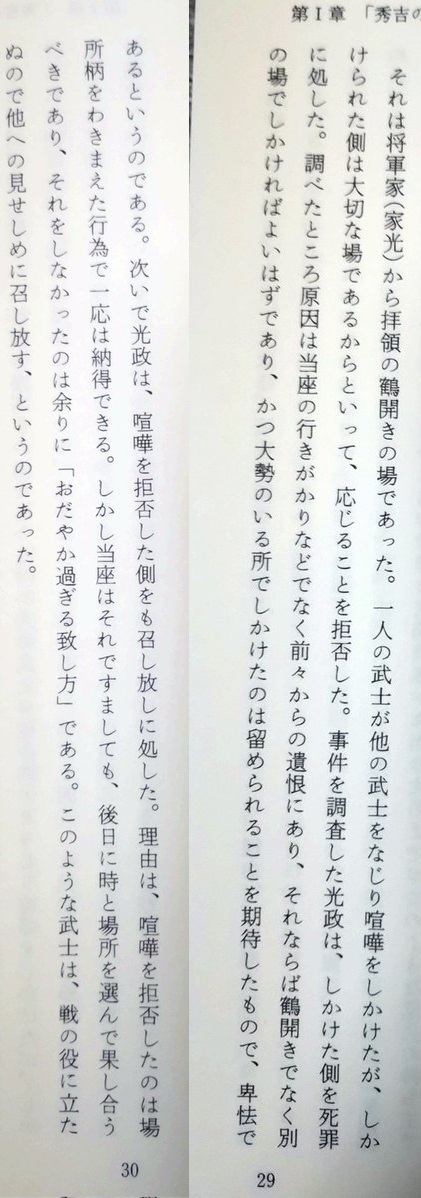 第Ⅰ章 「秀吉の
それは将軍家（家光）から拝領の鶴開きの場であった。一人の武士が他の武士をなじり喧嘩をしかけたが、しか
けられた側は大切な場であるからといって、応じることを拒否した。事件を調査した光政は、しかけた側を死罪
に処した。調べたところ原因は当座の行きがかりなどでなく前々からの遺恨にあり、それならば鶴開きでなく別
の場でしかければよいはずであり、かつ大勢のいる所でしかけたのは留められることを期待したもので、卑怯で
29
あるというのである。次いで光政は、喧嘩を拒否した側をも召し放しに処した。理由は、喧嘩を拒否したのは場
所柄をわきまえた行為で一応は納得できる。しかし当座はそれですましても、後日に時と場所を選んで果し合う
べきであり、それをしなかったのは余りに「おだやか過ぎる致し方」である。このような武士は、戦の役に立た
ぬので他への見せしめに召し放す、というのであった。
30